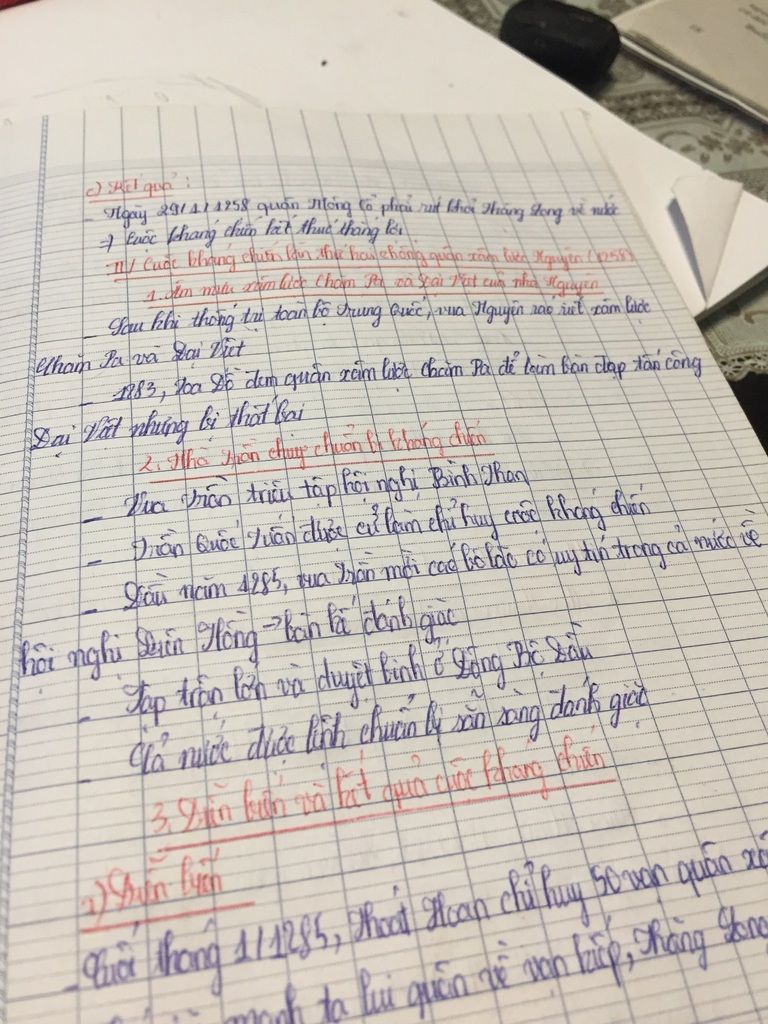 c) Kết quả :
- Ngày 29/1/1258 quân Mông Cổ phải rút khỏi Thăng Long về nước
=> Cuộc kháng chiến kết thúc thắng lợi
II/ Cuộc kháng chiến lần thứ hai chống quân xâm lược Nguyên (1258)
1. Âm mưu xâm lược Chăm Pa và Đại Việt của nhà Nguyên
- Sau khi thống trị toàn bộ Trung Quốc, vua Nguyên ráo riết xâm lược
Chăm Pa và Đại Việt
- 1283, Toa Đô đem quân xâm lược Chăm Pa để làm bàn đạp tấn công
Đại Việt nhưng bị thất bại
2. Nhà Trần chuẩn bị kháng chiến
- Vua Trần triệu tập hội nghị Bình Than
- Trần Quốc Tuấn được cử làm chỉ huy cuộc kháng chiến
- Đầu năm 1285, vua Trần mời các bô lão có uy tín trong cả nước về
hội nghị Diên Hồng -> bàn kế đánh giặc
- Tập trận lớn và duyệt binh ở Đông Bộ Đầu
- Cả nước được lệnh chuẩn bị sẵn sàng đánh giặc
3. Diễn biến và kết quả cuộc kháng chiến
a) Diễn biến
- Cuối tháng 1/1285, Thoát Hoan chỉ huy 50 vạn quân
mạnh ta lui quân về Vạn Kiếp, Thăng Long